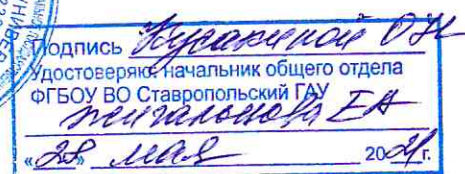 Подпись Кусакиной О.Н.
Удостоверяю: начальник общего отдела
ФГБОУ ВО Ставропольский ГАУ
ЕА
«28» мая 2021 г.